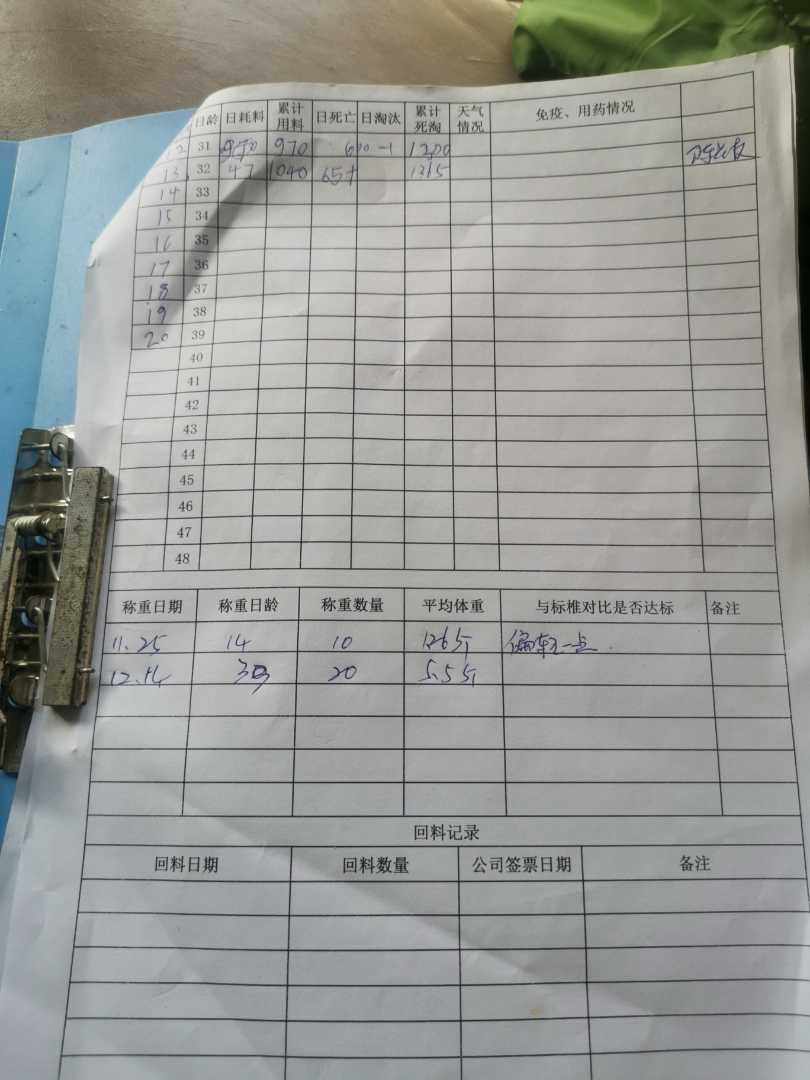 日龄 日耗料 累计用料 日死亡 日淘汰 累计死淘 天气情况 免疫、用药情况
12 31 970 600-1 1200
13 32 47 1040 65+
14 33
15 34
16 35
17 36
18 37
19 38
20 39
40
41
42
43
44
45
46
47
48
称重日期 称重日龄 称重数量 平均体重 与标椎对比是否达标 备注
11.25 14 10 偏轻一点.
20 5.5斤
回料记录
回料日期 回料数量 公司签票日期 备注